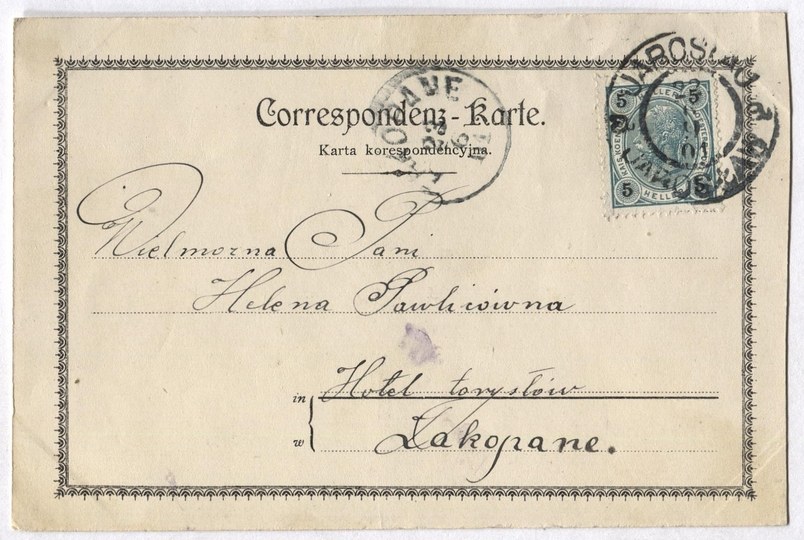 Correspondenz-Karte.
Karta korespondencyjna.
ZAKOPANE
JAROSLAU
JAROSŁAW
5 HELLER 5
5 HELLER 5
Wielmożna Pani
Helena Pawlicówna
in Hotel turystów
w Zakopane.